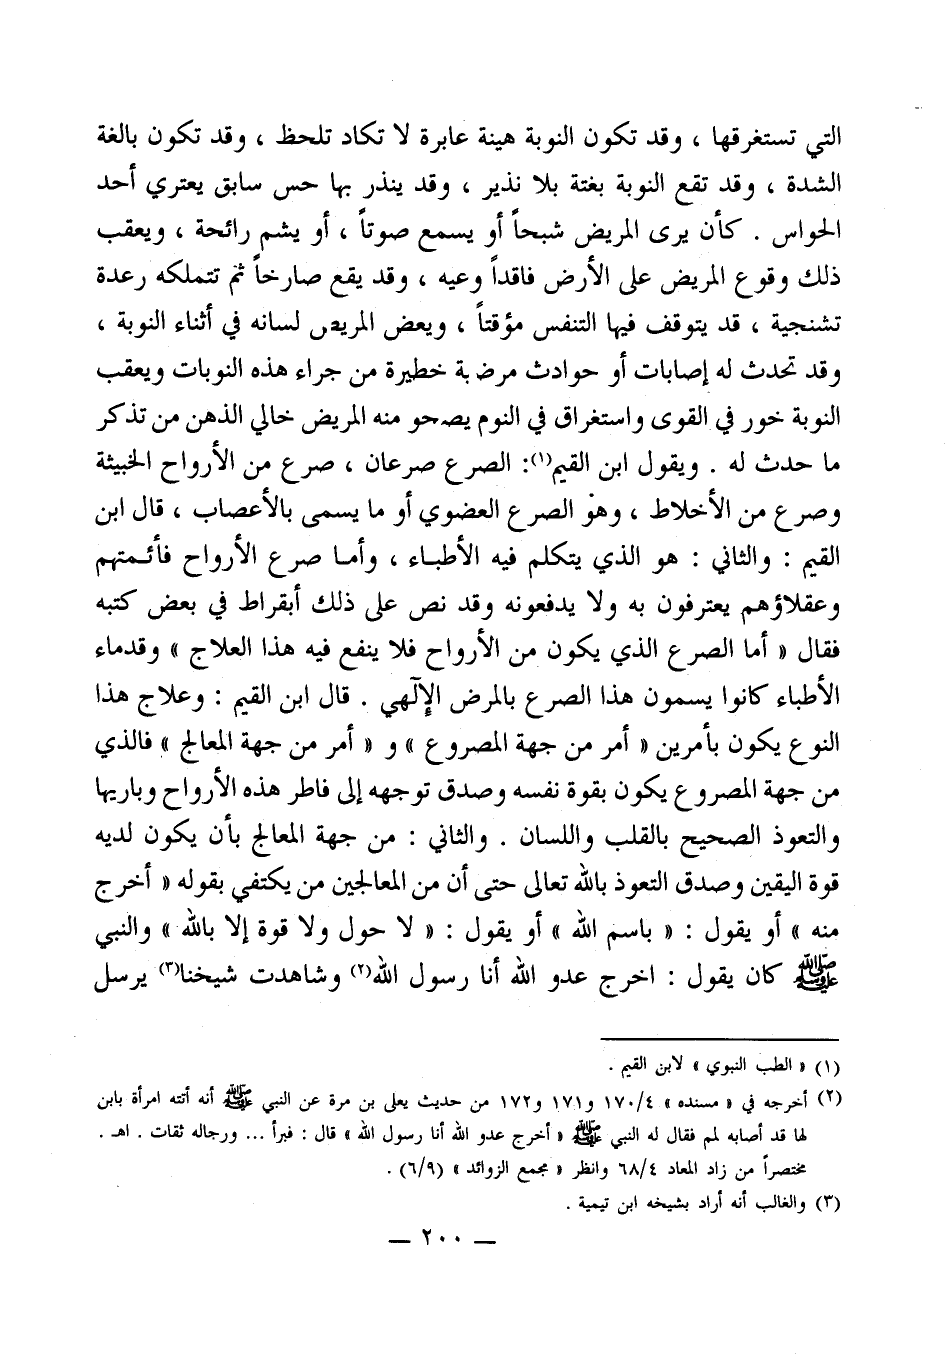 التي تستغرقها ، وقد تكون النوبة هينة عابرة لا تكاد تلحظ ، وقد تكون بالغة
الشدة ، وقد تقع النوبة بغتة بلا نذير ، وقد ينذر بها حس سابق يعتري أحد
الحواس . كأن يرى المريض شبحاً أو يسمع صوتاً ، أو يشم رائحة ، ويعقب
ذلك وقوع المريض على الأرض فاقداً وعيه ، وقد يقع صارخاً ثم تتملكه رعدة
تشنجية ، قد يتوقف فيها التنفس مؤقتاً ، ويعض المريض لسانه في أثناء النوبة ،
وقد تحدث له إصابات أو حوادث مرضية خطيرة من جراء هذه النوبات ويعقب
النوبة خور في القوى واستغراق في النوم يصحو منه المريض خالي الذهن من تذكر
ما حدث له . ويقول ابن القيم(١): الصرع صرعان ، صرع من الأرواح الخبيثة
وصرع من الأخلاط ، وهو الصرع العضوي أو ما يسمى بالأعصاب ، قال ابن
القيم : والثاني : هو الذي يتكلم فيه الأطباء ، وأما صرع الأرواح فأئمتهم
وعقلاؤهم يعترفون به ولا يدفعونه وقد نص على ذلك أبقراط في بعض كتبه
فقال « أما الصرع الذي يكون من الأرواح فلا ينفع فيه هذا العلاج » وقدماء
الأطباء كانوا يسمون هذا الصرع بالمرض الإلٓهي . قال ابن القيم : وعلاج هذا
النوع يكون بأمرين « أمر من جهة المصروع » و « أمر من جهة المعالج » فالذي
من جهة المصروع يكون بقوة نفسه وصدق توجهه إلى فاطر هذه الأرواح وباريها
والتعوذ الصحيح بالقلب واللسان . والثاني : من جهة المعالج بأن يكون لديه
قوة اليقين وصدق التعوذ بالله تعالى حتى أن من المعالجين من يكتفي بقوله « أخرج
منه » أو يقول : « باسم الله » أو يقول : « لا حول ولا قوة إلا بالله » والنبي
ﷺ كان يقول : اخرج عدو الله أنا رسول الله(٢) وشاهدت شيخنا(٣) يرسل
(١) « الطب النبوي » لابن القيم .
(٢) أخرجه في « مسنده » ١٧٠/٤ و١٧١ و١٧٢ من حديث يعلى بن مرة عن النبي ﷺ أنه أتته امرأة بابن
لها قد أصابه لمم فقال له النبي ﷺ « أخرج عدو الله أنا رسول الله » قال : فبرأ ... ورجاله ثقات . اهـ .
مختصراً من زاد المعاد ٦٨/٤ وانظر « مجمع الزوائد » (٦/٩) .
(٣) والغالب أنه أراد بشيخه ابن تيمية .
— ٢٠٠ —